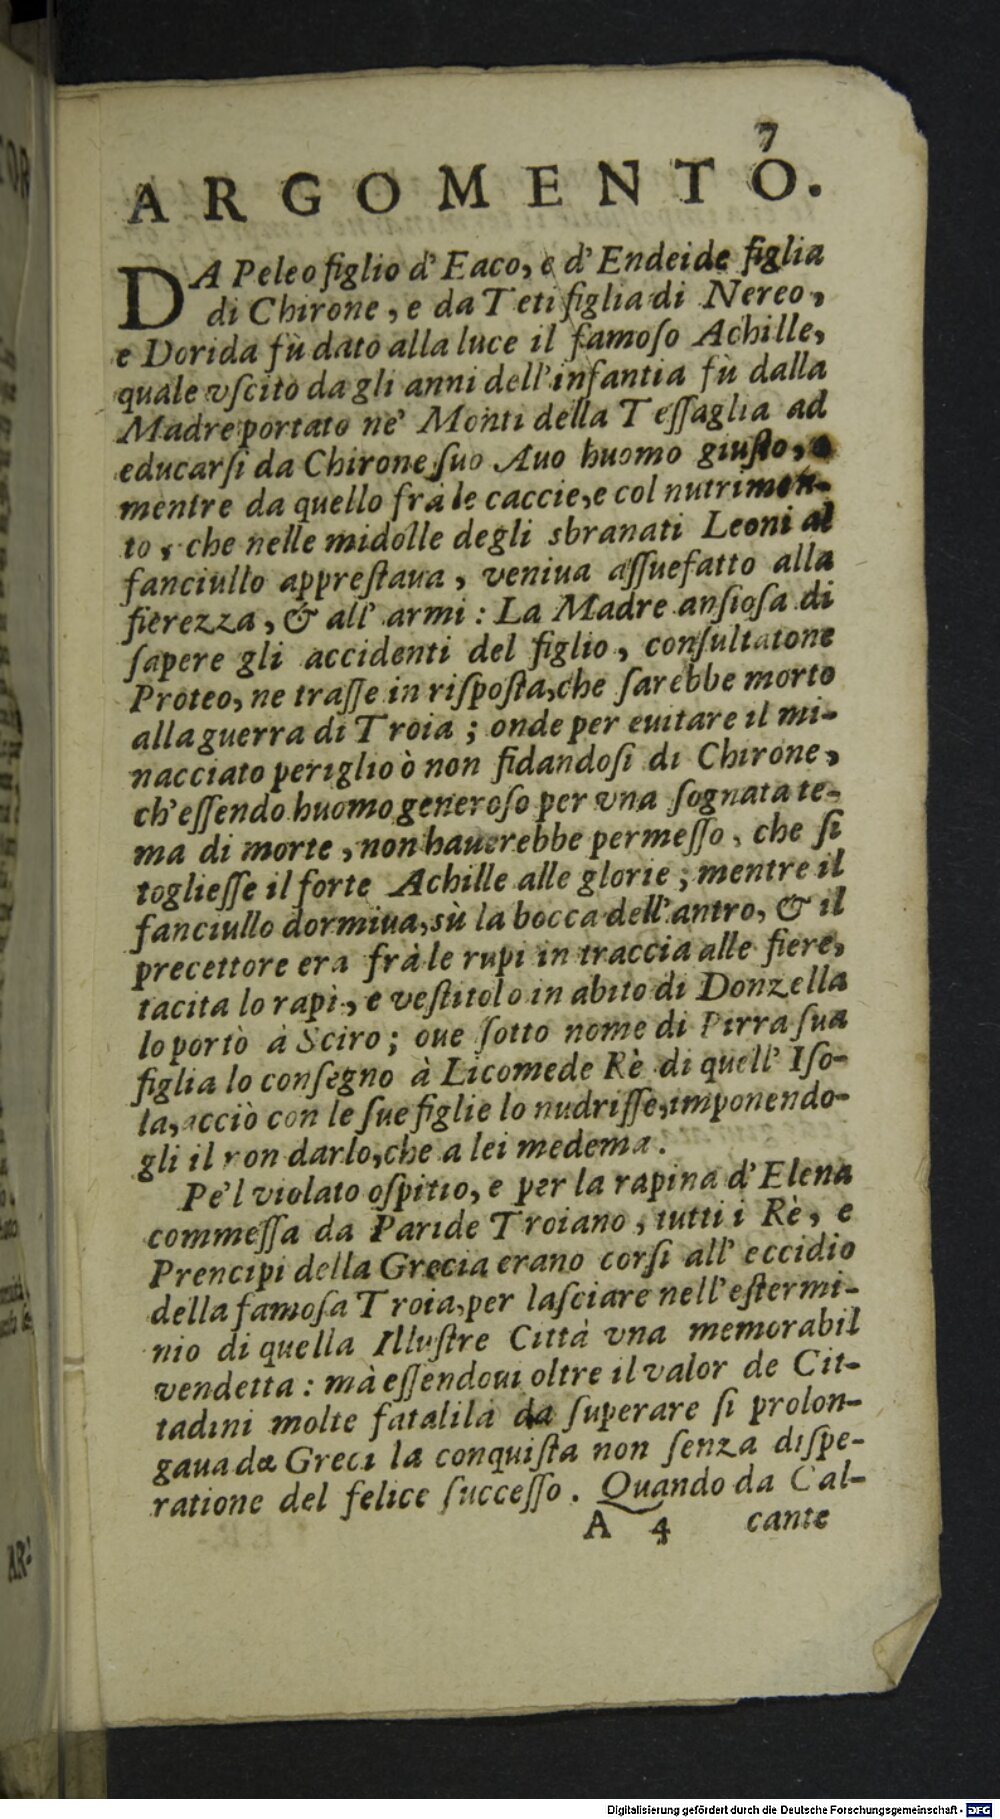 7
ARGOMENTO.
DA Peleo figlio d' Eaco, e d' Endeide figlia
di Chirone, e da Teti figlia di Nereo,
e Dorida fù dato alla luce il famoſo Achille,
quale vſcito da gli anni dell'infantia fù dalla
Madre portato ne' Monti della Teſſaglia ad
educarſi da Chirone ſuo Avo huomo giuſto, e
mentre da quello frà le caccie, e col nutrimen-
to, che nelle midolle degli sbranati Leoni al
fanciullo appreſtaua, veniua aſſuefatto alla
fierezza, & all' armi: La Madre anſioſa di
ſapere gli accidenti del figlio, conſultatone
Proteo, ne traſſe in riſpoſta, che ſarebbe morto
alla guerra di Troia; onde per euitare il mi-
nacciato periglio ò non fidandoſi di Chirone,
ch'eſſendo huomo generoſo per vna ſognata te-
ma di morte, non hauerebbe permeſſo, che ſi
toglieſſe il forte Achille alle glorie; mentre il
fanciullo dormiua, sù la bocca dell'antro, & il
precettore era frà le rupi in traccia alle fiere,
tacita lo rapì, e veſtitolo in abito di Donzella
lo portò à Sciro; oue ſotto nome di Pirra ſua
figlia lo conſegno à Licomede Rè di quell' Iſo-
la, acciò con le ſue figlie lo nudriſſe, imponendo-
gli il non darlo, che a lei medema.
Pe'l violato oſpitio, e per la rapina d'Elena
commeſſa da Paride Troiano, tutti i Rè, e
Prencipi della Grecia erano corſi all' eccidio
della famoſa Troia, per laſciare nell'eſtermi-
nio di quella Illuſtre Città vna memorabil
vendetta: mà eſſendoui oltre il valor de Cit-
tadini molte fatalilà da ſuperare ſi prolon-
gaua da Greci la conquiſta non ſenza diſpe-
ratione del felice ſucceſſo. Quando da Cal-
A 4 cante
AR-
Digitalisierung gefördert durch die Deutsche Forschungsgemeinschaft - DFG